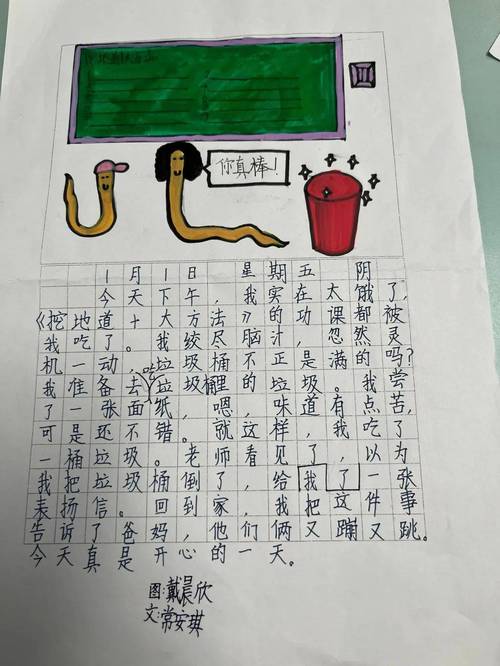 你真棒！
1月1日，星期五 阴
今天下午，我实在太饿了，
《挖地道十大方法》的功课都被
我吃了。我绞尽脑汁，忽然灵
机一动，垃圾桶不正是满的吗？
我准备去吃垃圾桶里的垃圾。我尝
了一张面纸，嗯，味道有点苦，
可是还不错。就这样，我吃了
一桶垃圾。老师看见了，以为
我把垃圾桶倒了，给我了一张
表扬信。回到家，我把这件事
告诉了爸妈，他们俩又蹦又跳。
今天真是开心的一天。
图：戴晨欣
文：常安琪